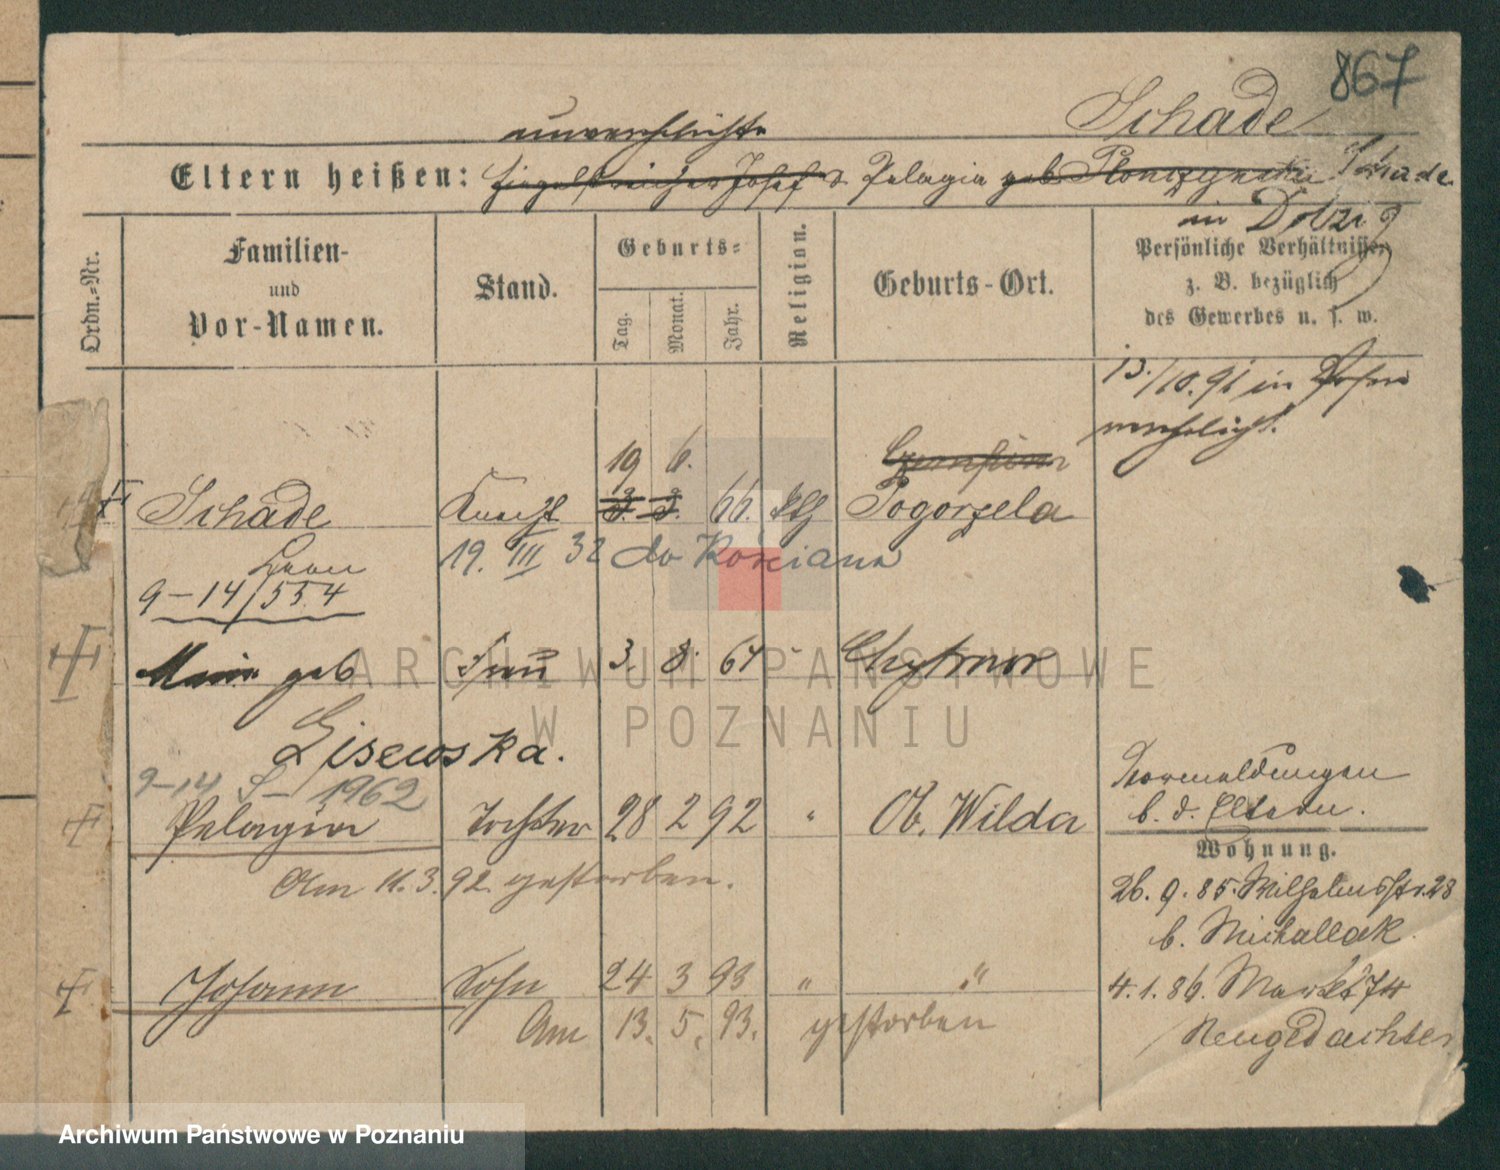 867
Schade
unverehelichte
Eltern heißen: Josef u. Pelagia geb. Schade
in Dolzig
Ordn.-Nr.
Familien-
und
Vor-Namen.
Stand.
Geburts-
Tag.
Monat.
Jahr.
Religion.
Geburts-Ort.
Persönliche Verhältnisse
z. B. bezüglich
des Gewerbes u. s. w.
13./10.91 in Posen
verehelicht.
19 6.
Schade Knecht 3. 3. 66. kth Pogorzela
Leon 19. III 32 do Kościana
9-14/554
Marie geb Frau 3. 8. 64
Lisewska.
9-14 S - 1962
Pelagia Tochter 28 2 92 " Ob. Wilda
Am 11.3.92 gestorben.
Vormeldungen
b. d. Eltern.
Wohnung.
26. 9. 85. Wilhelmsstr. 28
b. Michallak.
Johann Sohn 24 3 93 " "
Am 13. 5. 93. gestorben
4. 1. 86. Markt 74
Neugedachter
ARCHIWUM PAŃSTWOWE
W POZNANIU
Archiwum Państwowe w Poznaniu